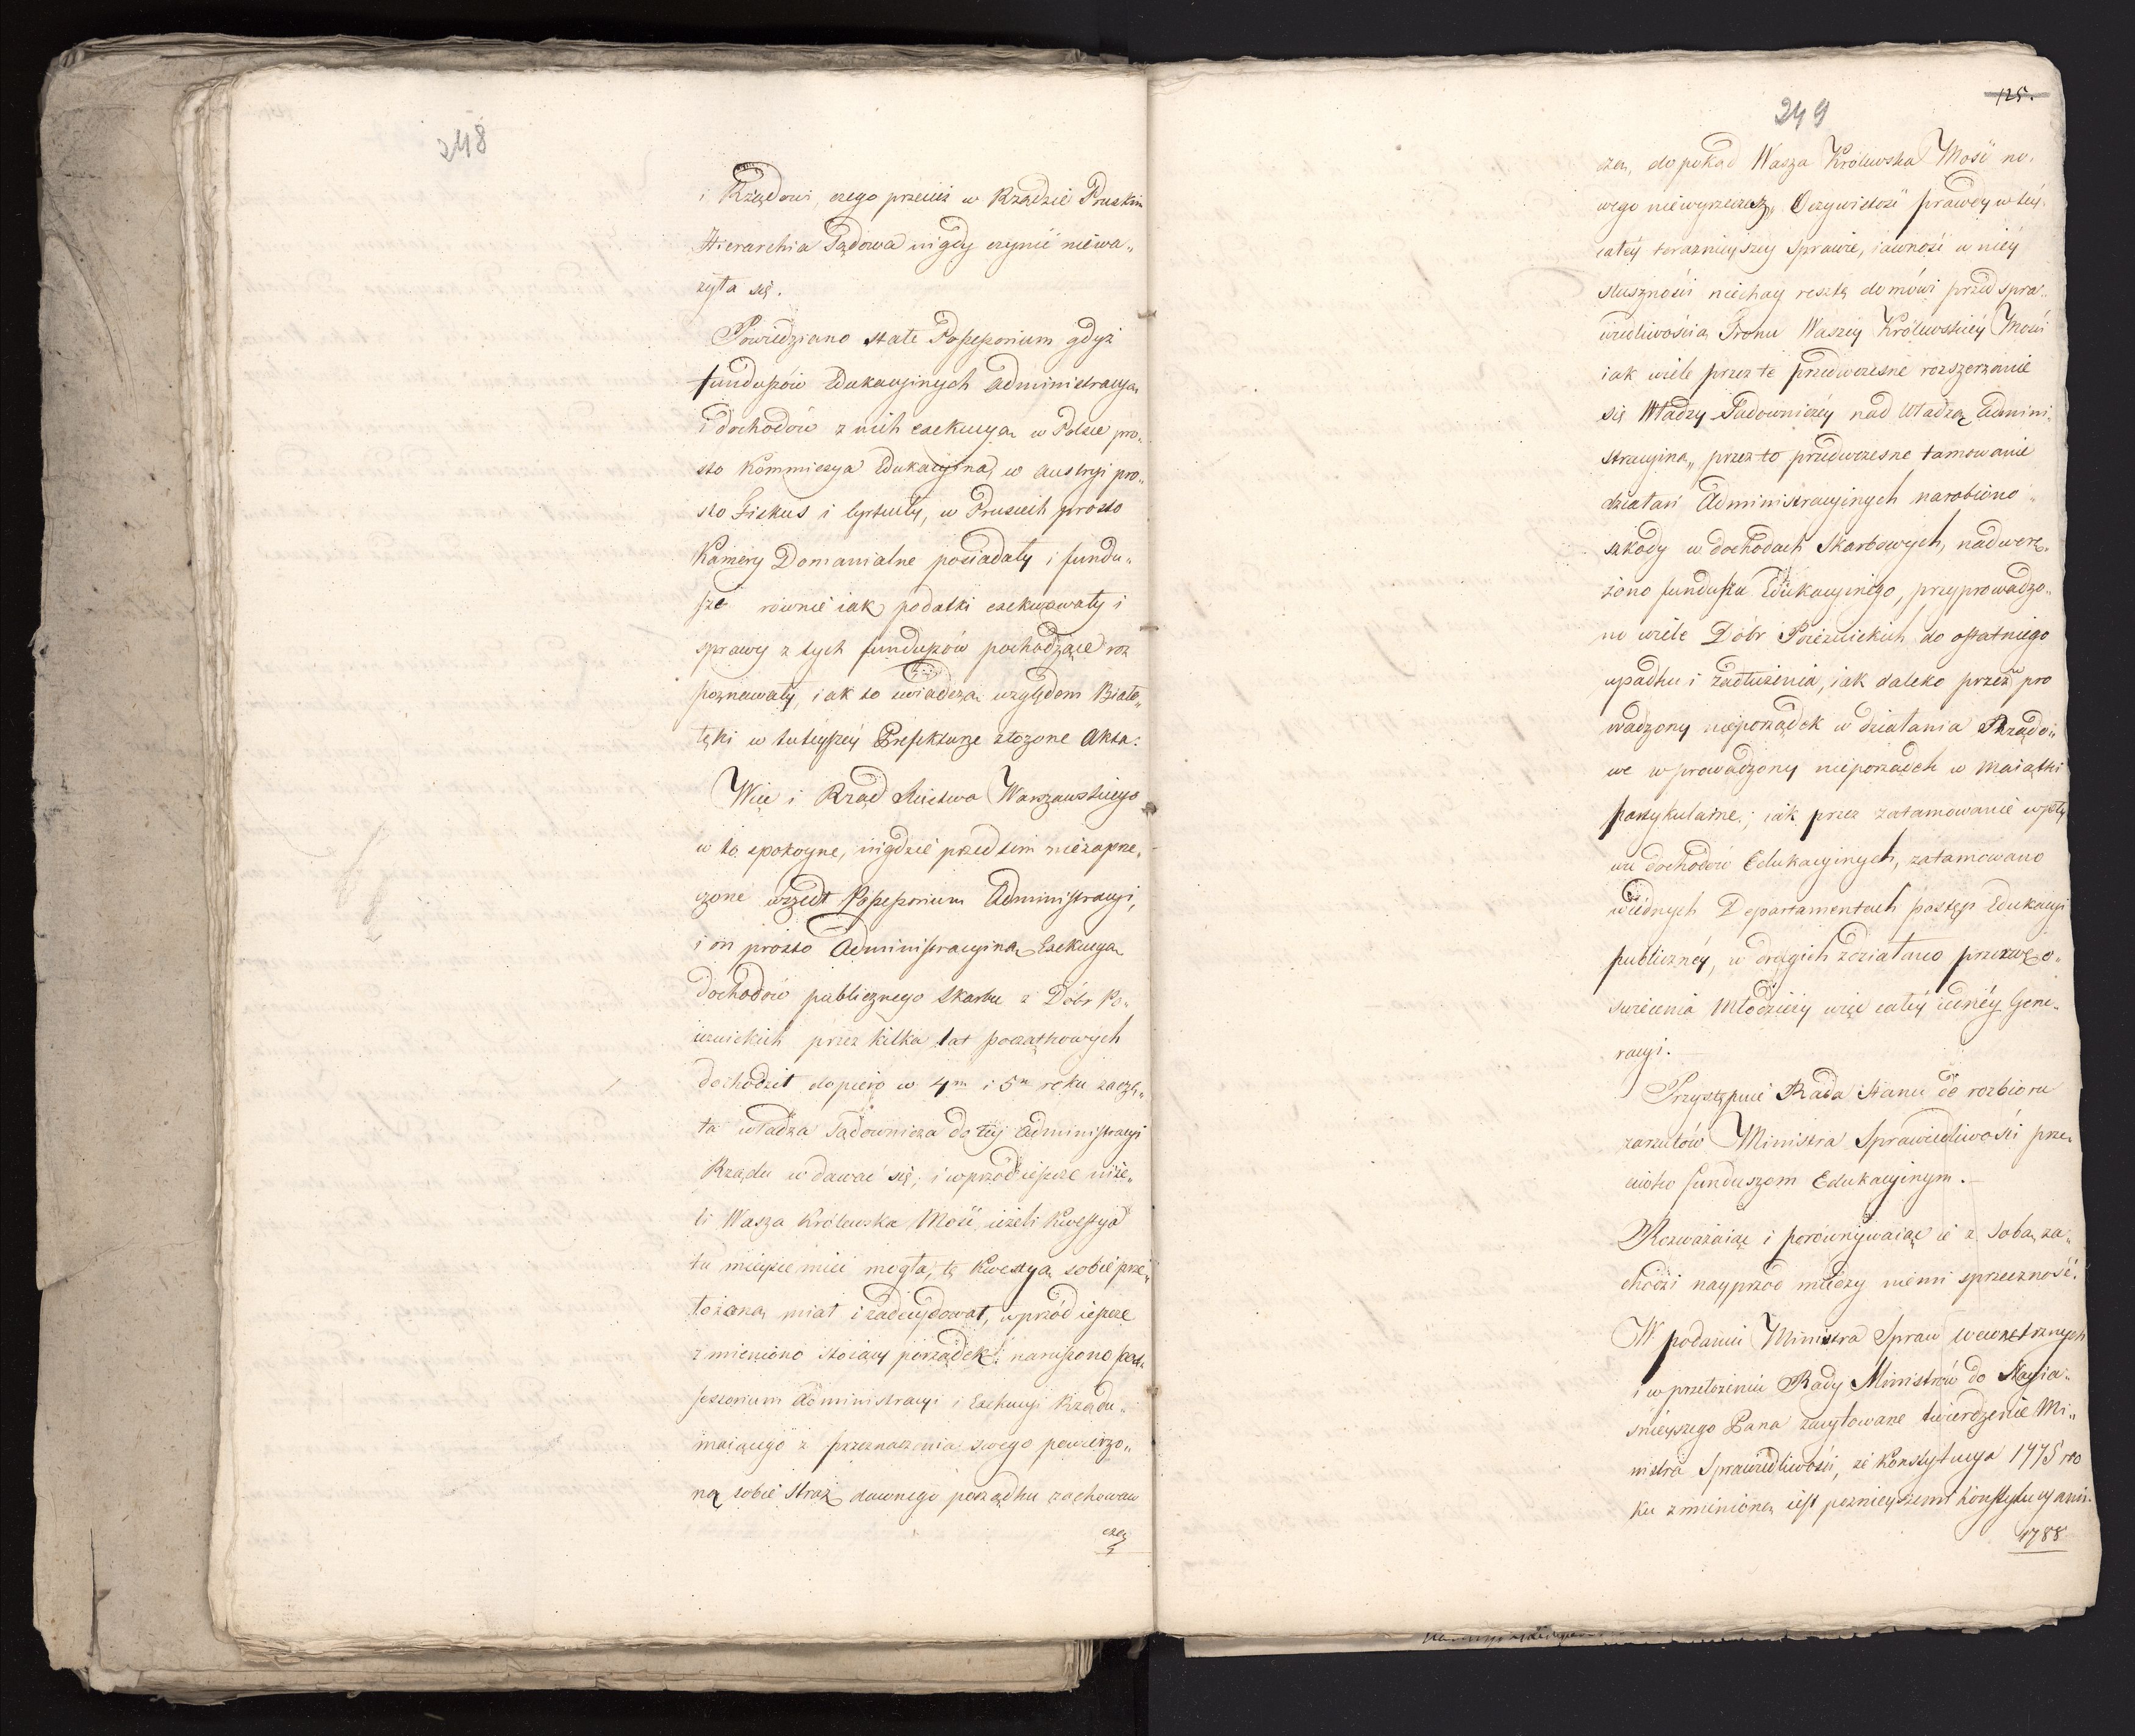 248
i Rządowi, czego przecież w Rządzie Pruskim
Hierarchia Sądowa nigdy czynić niewa„
żyła się.
Powiedziano stałe Possessorium gdyż
funduszów Edukacyinych administracyą
i dochodów z nich exekucyą w Polsce pro„
sto Kommissya Edukacyina, w Austryi pro„
sto Fiskus i Cyrkuły, w Prusiech prosto
Kamery Domanialne posiadały i fundu„
sze równie iak podatki exekwowały i
sprawy z tych funduszów pochodzące roz
poznawały, iak to świadczą względem Biało„
łęki w tuteyszey Prefekturze złożone Akta.
Więc i Rząd Xięstwa Warszawskiego
w to spokoyne, nigdzie przedtem niezaprze„
czone wszedł Possessorium Administracyi,
i on prosto Administracyiną Exekucyą
dochodów publicznego Skarbu z Dóbr Po„
iezuickich przez kilka lat początkowych
dochodził, dopiero w 4m i 5m roku zaczę„
ła władza Sądownicza do tey administracyi
Rządu wdawać się, i wprzód ieszcze niże„
li Wasza Królewska Mość, ieżeli kwestya
tu mieysce mieć mogła, tę kwestyą sobie prze„
łożoną miał i zadecydował, wprzód ieszcze
zmieniono stoiący porządek i naruszono pos„
sessorium Administracyi i Exekucyi Rządu„
maiącego z przeznaczenia swego powierzo„
ną sobie straż dawnego porządku zachowaw
czą
125.
249
czą, dopokąd Wasza Królewska Mość no„
wego niewyrzeczesz. Oczywistość prawdy w tey„
całey teraznieyszey sprawie, iawność w niey
słuszności niechay resztę domówi przed spra„
wiedliwością Tronu Waszey Królewskiey Mości
iak wiele przez te przedwczesne rozszerzenie
się Władzy Sądowniczey nad Władzę Admini„
stracyiną, przez to przedwczesne tamowanie
działań Administracyinych narobiono
szkody w dochodach Skarbowych, nadwerę„
żono funduszu Edukacyinego, przyprowadzo„
no wiele Dóbr Poiezuickich do ostatniego
upadku i zadłużenia, iak daleko przez w pro
wadzony nieporządek w działania Rządo„
we wprowadzony nieporządek w maiątki
partykularne; iak przez zatamowanie wpły
wu dochodów Edukacyinych, zatamowano
w iednych Departamentach postęp Edukacyi
publiczney, w drugich zdziałano przerwę o„
świecenia Młodzieży więc całey iedney Gene„
racyi.
Przystępuie Rada Stanu do rozbioru
zarzutów Ministra Sprawiedliwości prze„
ciwko funduszom Edukacyinym.
Rozważaiąc i porównywaiąc ie z sobą, za„
chodzi nayprzód między niemi sprzeczność.
W podaniu Ministra Spraw wewnętrznych
i w przełożeniu Rady Ministrów do Nayia„
śnieyszego Pana zacytowane twierdzenie Mi„
nistra Sprawiedliwości, że Konstytucya 1775 ro
ku zmienioną iest poznieyszemi konstytucyami
1788